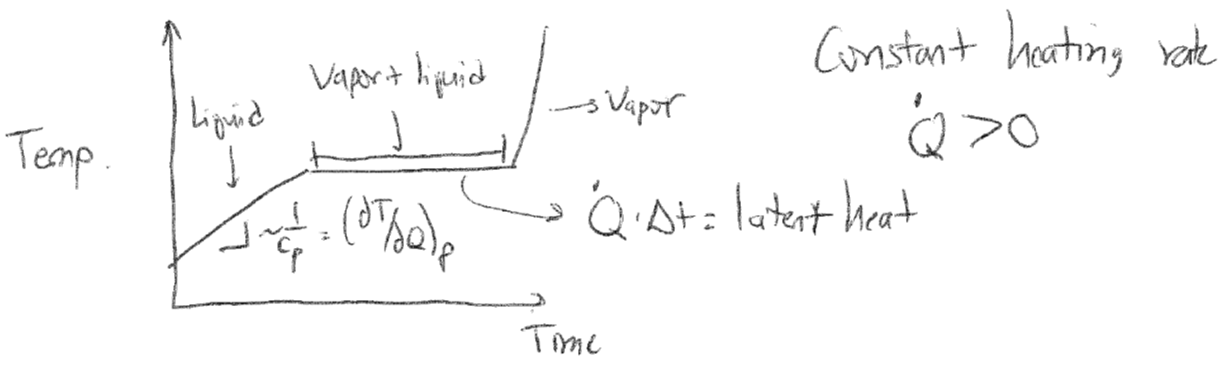 Constant heating rate
Q̇ > 0
Vapor + liquid
Liquid
→ Vapor
Temp.
~ 1/Cp = (∂T/∂Q)p
→ Q̇ · Δt = latent heat
Time